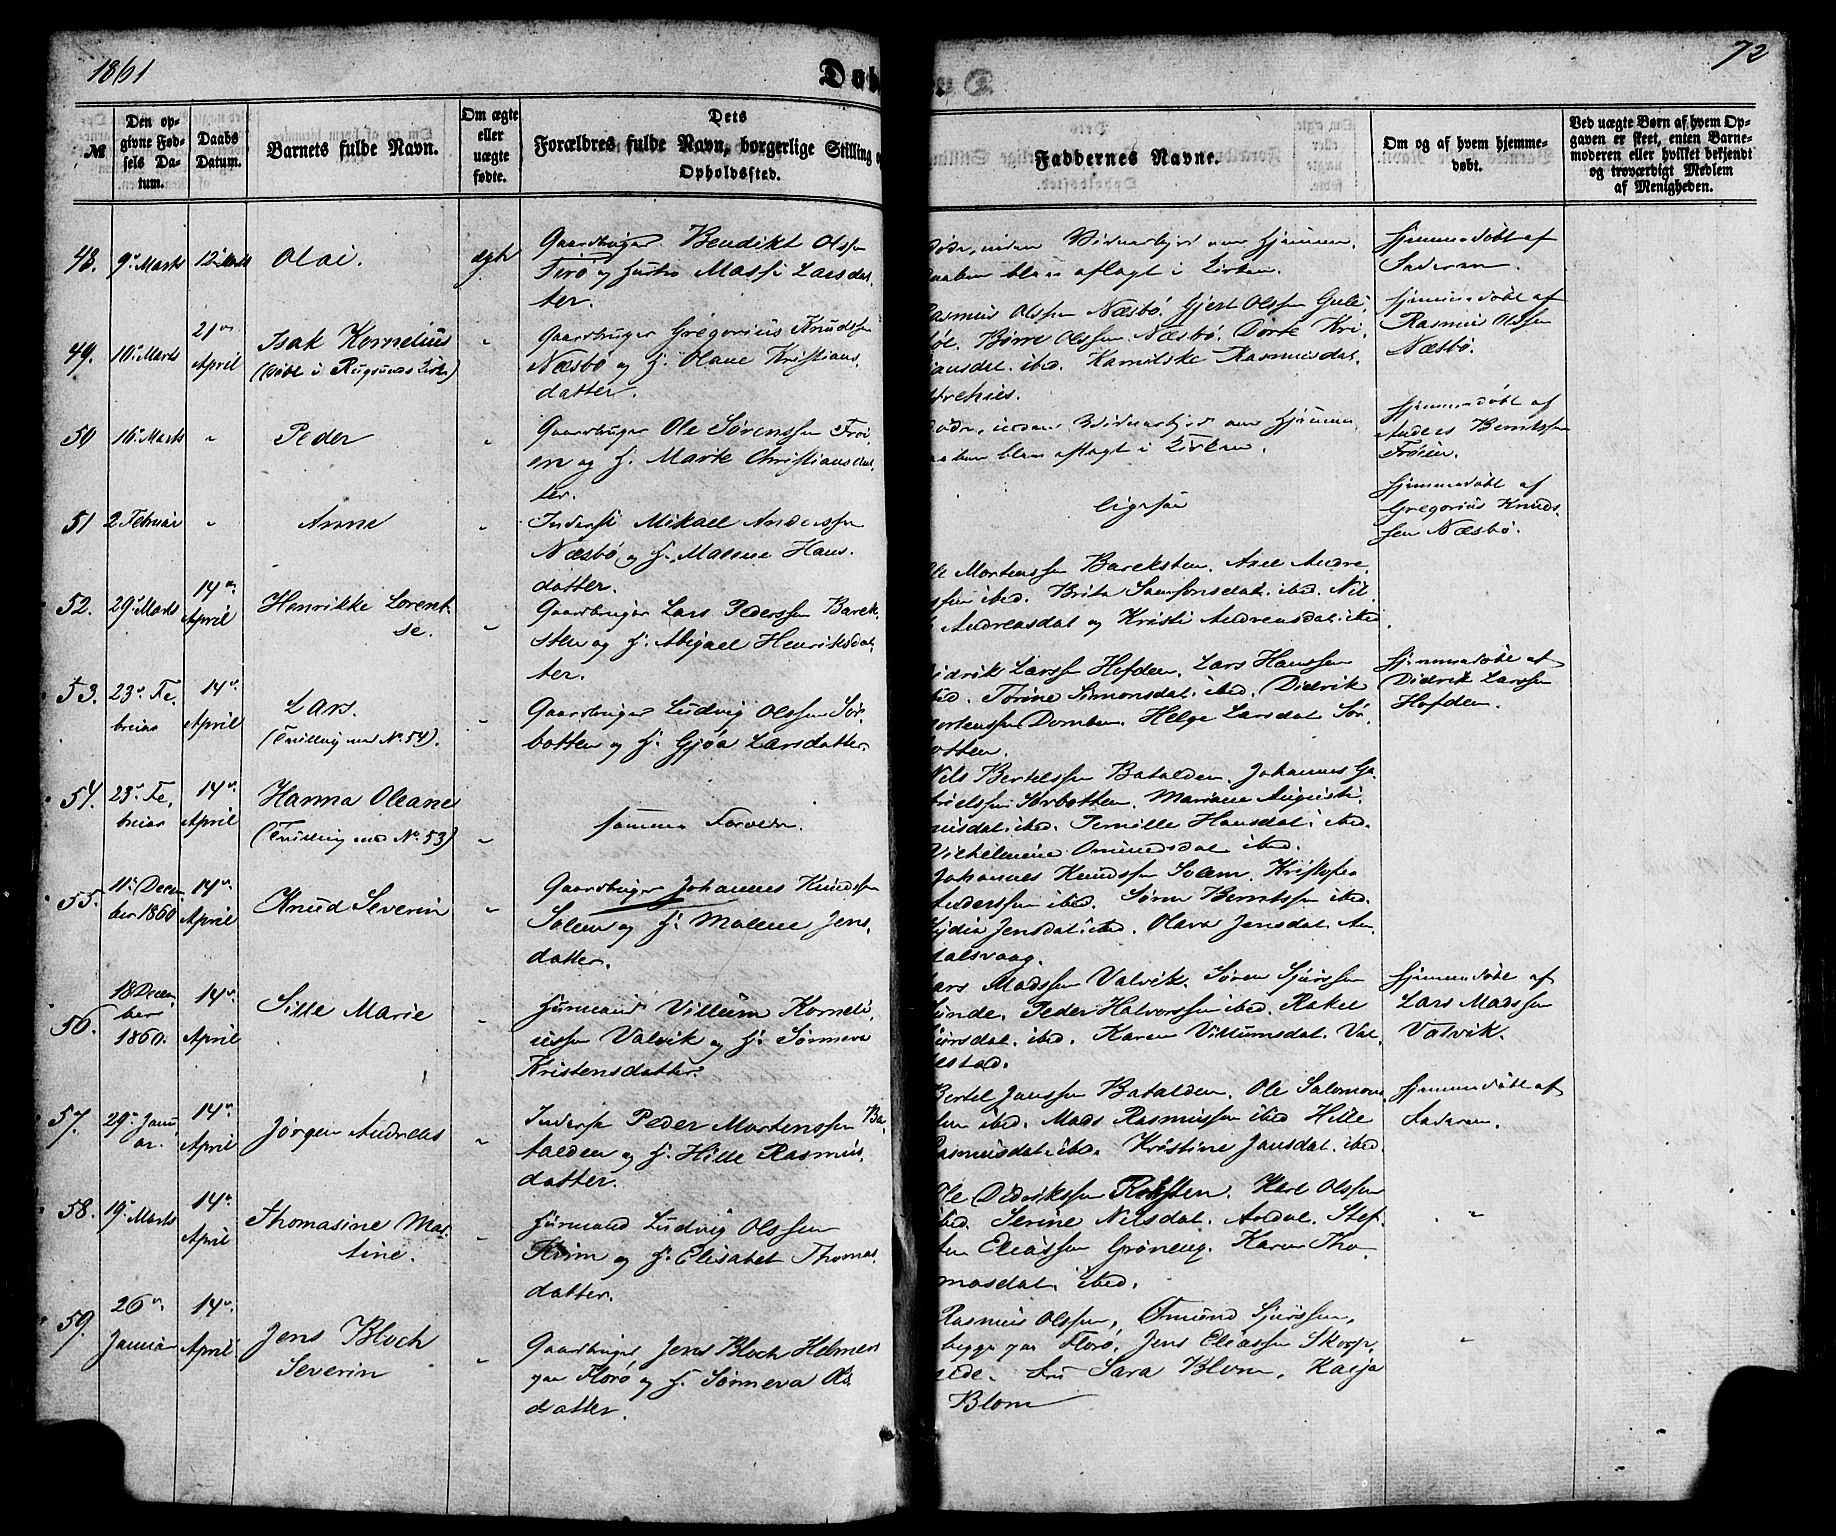 1861
Døb
72
№
Den op-
givne Fød-
sels Da-
tum.
Daabs
Datum.
Barnets fulde Navn.
Om ægte
eller
uægte
fødte.
Dets
Forældres fulde Navn, borgerlige Stilling o
Opholdssted.
Faddernes Navne.
Om og af hvem hjemme-
døbt.
Ved uægte Børn af hvem Op-
gaven er skeet, enten Barne-
moderen eller hvilket bekjendt
og troværdigt Medlem
af Menigheden.
48. 9de Marts 12 Marts Olai. ægte
Gaardbruger Bendikt Olsen
Firø og Hustru Massi Larsdat-
ter.
døde, inden Vidnesbyrd om Hjemme-
daaben blev aflagt i Kirken.
Hjemmedøbt af
Faderen.
49. 10de Marts 21de April
Isak Kornelius
(døbt i Rugsunds Kirke)
Gaardbruger Gregorius Knudsen
Næsbø og H. Olave Kristians-
datter.
Rasmus Olssen Næsbø, Gjert Olssen Gule-
bøe. Børre Olssen Næsbø. Dorte Kri-
stiansdat. ibid. Karnilske Rasmusdat.
Hjemmedøbt af
Rasmus Olsen
Næsbø.
50 16de Marts " Peder "
Gaardbruger Ole Sørenssen Frøi-
en og H. Marte Christiansdat-
ter.
døde, inden Vidnesbyrd om Hjemme-
daaben blev aflagt i Kirken.
Hjemmedøbt af
Anders Berntssen
Frøien.
51 2 Februar " Anne "
Inderst Mikael Anderssen
Næsbø og H. Malene Hans-
datter.
ligesaa
Hjemmedøbt af
Gregorius Knuds-
sen Næsbø.
52. 29de Marts 14de April
Henrikke Lorent-
se.
Gaardbruger Lars Pederssen Barek-
sten og H. Abigael Henriksdat-
ter.
Ole Mortenssen Bareksten. Axel Andre-
assen ibid. Brita Samsonsdat. ibid. Nil-
Andreasdat og Kristi Andreasdat. ibid.
53. 23de Fe-
bruar 14de April
Lars.
(Tvilling med No. 54).
Gaardbruger Ludvig Olssen Sør-
botten og H. Gjøa Larsdatter
Didrik Larssen Hofden. Lars Hanssen
ibid. Torine Simonsdat. ibid. Didrik
Mortenssen Domben. Helge Larsdat Sør-
botten.
Hjemmedøbt af
Didrik Larssen
Hofden.
54. 23de Fe-
bruar 14de April
Hanna Oleane
(Tvilling med No. 53)
samme Forældre.
Nils Bertelssen Batalden. Johannes Ga-
brielssen Sørbotten. Mariane Augusti-
nusdat. ibid. Pernille Hansdat. ibid.
Vilhelmine Omundsdat ibid.
55. 11te Decem-
ber 1860 14de April
Knud Severin
Gaardbruger Johannes Knudssen
Solem og H. Malene Jens-
datter.
Johannes Knudssen Solem. Kristofer
Anderssen ibid. Sørn Berntssen ibid.
Lydia Jensdat. ibid. Olava Jensdat. An-
dalsvaag.
56. 18 Decem-
ber
1860. 14de April
Sille Marie
Huusmand Villum Korneli-
ussen Valvik og H. Sørneva
Kristensdatter.
Lars Madssen Valvik. Søren Sjurssen
Sunde. Peder Halvorssen ibid. Rakel
Sjursdat. ibid. Karen Villumsdat. Val-
Hjemmedøbt af
Lars Madssen
Valvik.
57. 29de Janu-
ar. 14de April
Jørgen Andreas
Inderst Peder Mortenssen Ba-
talden og H. Hille Rasmus-
datter.
Bertel Janssen Batalden. Ole Salomons-
sen ibid. Mads Rasmussen ibid Hille
Rasmusdat. ibid. Kristine Jansdat. ibid.
Hjemmedøbt af
Faderen.
58. 19de Marts 14de April
Thomasine Mar-
tine.
Huusmand Ludvig Olssen
Krim og H. Elisabet Thomas-
datter.
Ole Didrikssen. Karl Olssen
ibid. Serine Nilsdat. Andal. Stef-
fen Eliassen Grøneng. Karen Tho-
masdat. ibid.
"
59. 26de Januar 14de April
Jens Bloch
Severin
Gaardbruger Jens Bloch Helmers
paa Florø og H. Sørneva Ols-
datter.
Rasmus Olssen, Ømund Sjurssen,
begge paa Florø. Jens Eliassen Skorp-
Fru Sara Blom, Kaija
Blom
"